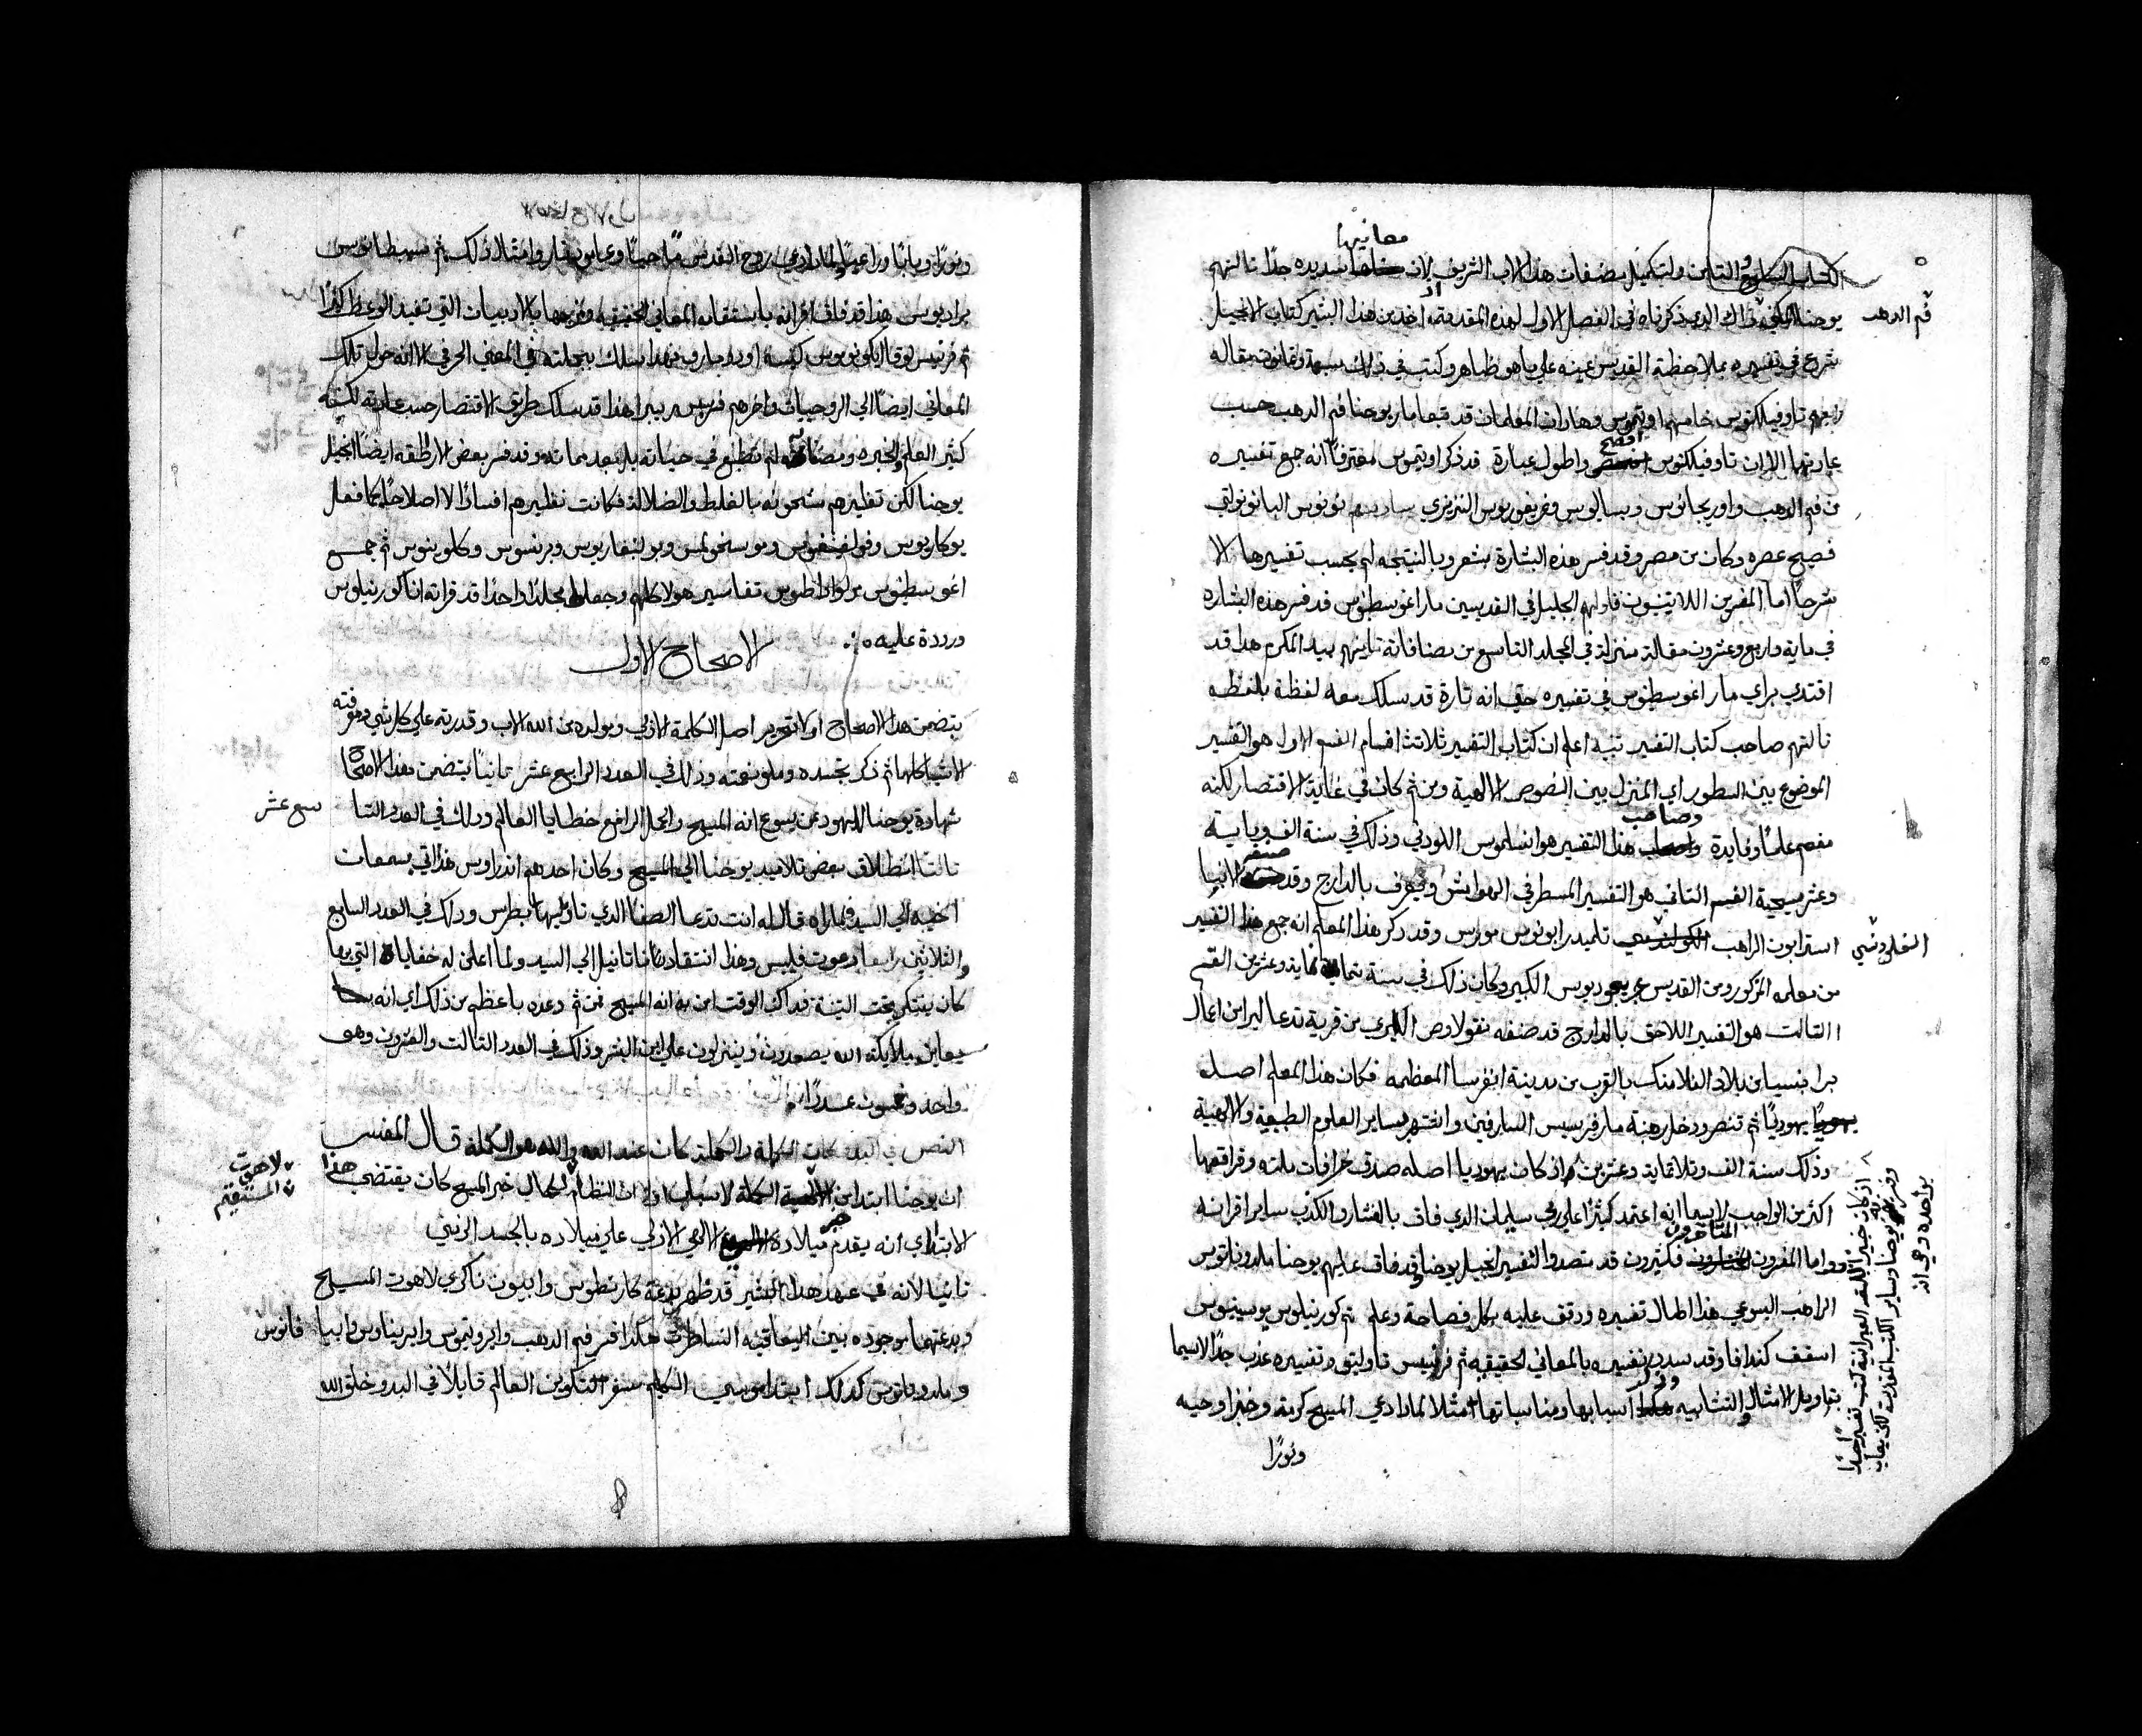 معانيها
الكتاب السابع والثامن ولتكميل مصنفات هذا الاب الشريف لان سديده جدًا ثالثهم
فم الدهب
يوحنا ذاك الدي ذكرناه في الفصل الاول لهذه المقدمة اخذ من هذا البشير كتاب الانجيل
شرع في تفسيره بملاحظة القديس عينه علي ما هو ظاهر وكتب في ذلك سبعة وثمانون مقاله
رابعهم تاوفيلكتوس خامسهم اوتيموس وهذان المعلمان قد تبعا مار يوحنا فم الدهب حسب
عادتهما الا ان تاوفيلكتوس افصح واطول عبارة قد ذكر اوتيموس معترفًا انه جمع تفسيره
من فم الدهب واوريجانوس وبساليوس وغريغوريوس النزينزي سادسهم نونوس البانوبولتي
فصيح عصره وكان من مصر وقد فسر هذه البشارة بشعر وبالنتيجه لم يحسب تفسيرها الا
شرحًا اما المفسرين اللاتينيون فاولهم الجليل في القديسين مار اغوسطينوس قد فسر هذه البشاره
في ماية واربع وعشرون مقالة منزلة في المجلد التاسع من مصنافاته ثانيهم بيدا المكرم هدا قد
اقتدي براي مار اغوسطينوس في تفسيره حتي انه تارة قد سلك معه لفظة بلفظه
ثالثهم صاحب كتاب التفسير تنبيه اعلم ان كتاب التفسير ثلاثة اقسام القسم الاول هو التفسير
الموضوع بين السطور اي المنزل بين النصوص الالهية ومن ثم كان في غاية الاقتصار لكنه
مفعم علمًا وفايدة وصاحب هذا التفسير هو انسلموس اللودني وذلك في سنة الف وماية
وعشر مسيحية القسم التاني هو التفسير المسطر في الهوامش ويعرف بالدارج وقد صنفه الانبا
استرابون الراهب الفلدونسي تلميد رابونوس موروس وقد دكر هذا المعلم انه جمع هذا التفسير
من معلمه المزكور ومن القديس غريغوريوس الكبير وكان ذلك في سنة ثماية وعشرين القسم
التالت هو التفسير اللاحق بالدارج قد صنفه نقولاوص الليري من قرية تدعا ليرا من اعمال
برابنسيا من بلاد الفلامنك بالقرب من مدينة انفرسا المعظمه فكان هذا المعلم اصله
يهوديًا ثم تنصر ودخل رهبنة مار فرنسيس السارفين واشتهر بساير العلوم الطبيعية والالهية
وذلك سنة الف وتلاتماية وعشرين واذ كان يهوديا اصله صدق خرافات ملته وفراقعها
اكثر من الواجب لاسيما انه اعتمد كثيرًا علي ربي سليمان الدي فاق بالفشار والكذب ساير اقرانه
واما المفسرون المتاخرون فكثيرون قد تصدوا لتفسير انجيل يوحنا وقد فاق عليهم يوحنا ملدوناتوس
الراهب اليسوعي هذا اطال تفسيره ودقق عليه بكل فصاحة وعلم ثم كورنيلوس يوسينيوس
اسقف كندافا وقد سدد تفسيره بالمعاني الحقيقيه ثم فرنسيس تاوليتوه وتفسيره عذب جدًا لاسيما
بتاويل الامثال والتشابيه وذكر اسبابها ومناسباتها مثلا لماذا دعي المسيح كرمة وخبزا وحيه
ونورًا
ونورًا وبابًا وراعيًا ولماذا دعي روح القدس وامثال ذلك ثم سبسطيانوس
براديوس هذا قد فاق اقرانه باستقصايه المعاني الحقيقيه ومزجها بالادبيات التي تفيد الوعظ كثيرًا
ثم فرنسيس لوقا
المعاني ايضًا الي الروحيات واخرهم فرنسيس ريبيرا هذا قد سلك طريق الاقتصار حسب عادته لكنه
كثير العلم والخبره ومصنفاته لم تطبع في حياته بل بعد مماته وقد فسر بعض الارطقه ايضًا انجيل
يوحنا لكن تفاسيرهم مشحونه بالغلط والضلالة فكانت تفاسيرهم افسادًا لا اصلاحًا كما فعل
بوكاريوس وفولفنغوس وموسخولس وبولنغاريوس وبرنسوس وكلوينوس ثم جمع
اغوسطينوس مرلواراطوس تفاسير هولاء كلهم وجعلها مجلدًا واحدًا قد قراته انا كورنيلوس
ورددة عليه
الاصحاح الاول
يتضمن هذا الاصحاح اولا تحرير اصل الكلمة الازلي ومولده من الله الاب وقدرته علي كل شي ومعرفته
الاشيا كلها ثم ذكر تجسده وملو نعمته وذلك في العدد الرابع عشر ثانيًا يتضمن هذا الاصحاح
شهادة يوحنا لليهود عن يسوع انه المسيح والحمل الرافع خطايا العالم ودلك في العدد التا سع عشر
ثالثا انطلاق بعض تلاميد يوحنا الي المسيح وكان احدهم اندراوس هذا اتي بسمعان
اخيه الي السيد فلما راه قال له انت تدعا الصفا الدي تاويلها بطرس ودلك في العدد السابع
والثلاثين رابعا دعوت فيلبس وهذا انتقاد ناتانيل الي السيد ولما اعلن له خفاياه التي بها
كان يفتكر تحت التينة فداك الوقت امن به انه المسيح من ثم وعده باعظم من ذلك اي انه
سيعاين ملايكة الله يصعدون وينزلون علي ابن البشر وذلك في العدد التالت والعشرون وهو
واحد وخمسون عددًا
النص في البدء كان الكلمة والكلمة كان عند الله والله هو الكلمة قال المفسر
ان يوحنا ابتدا من لاهوت الكلمة لاسباب اولا ان النظام المستقيم لكمال خبر المسيح كان يقتضي هذا
الابتداي انه يقدم خبر ميلاده الالهي الازلي علي ميلاده بالجسد الزمني
ثانيا لانه في عهد هذا البشير قد ظهر بدعة كارنطوس وابيون ناكري لاهوت المسيح
وبدعتهما موجوده بين اليعاقبه النساطرة هكذا فسر فم الدهب وايرونيموس وايريناوس وابيفانوس
وملدوناتوس كدلك ابتدا موسي الكليم سفر التكوين العالم قايلا في البدو خلق الله